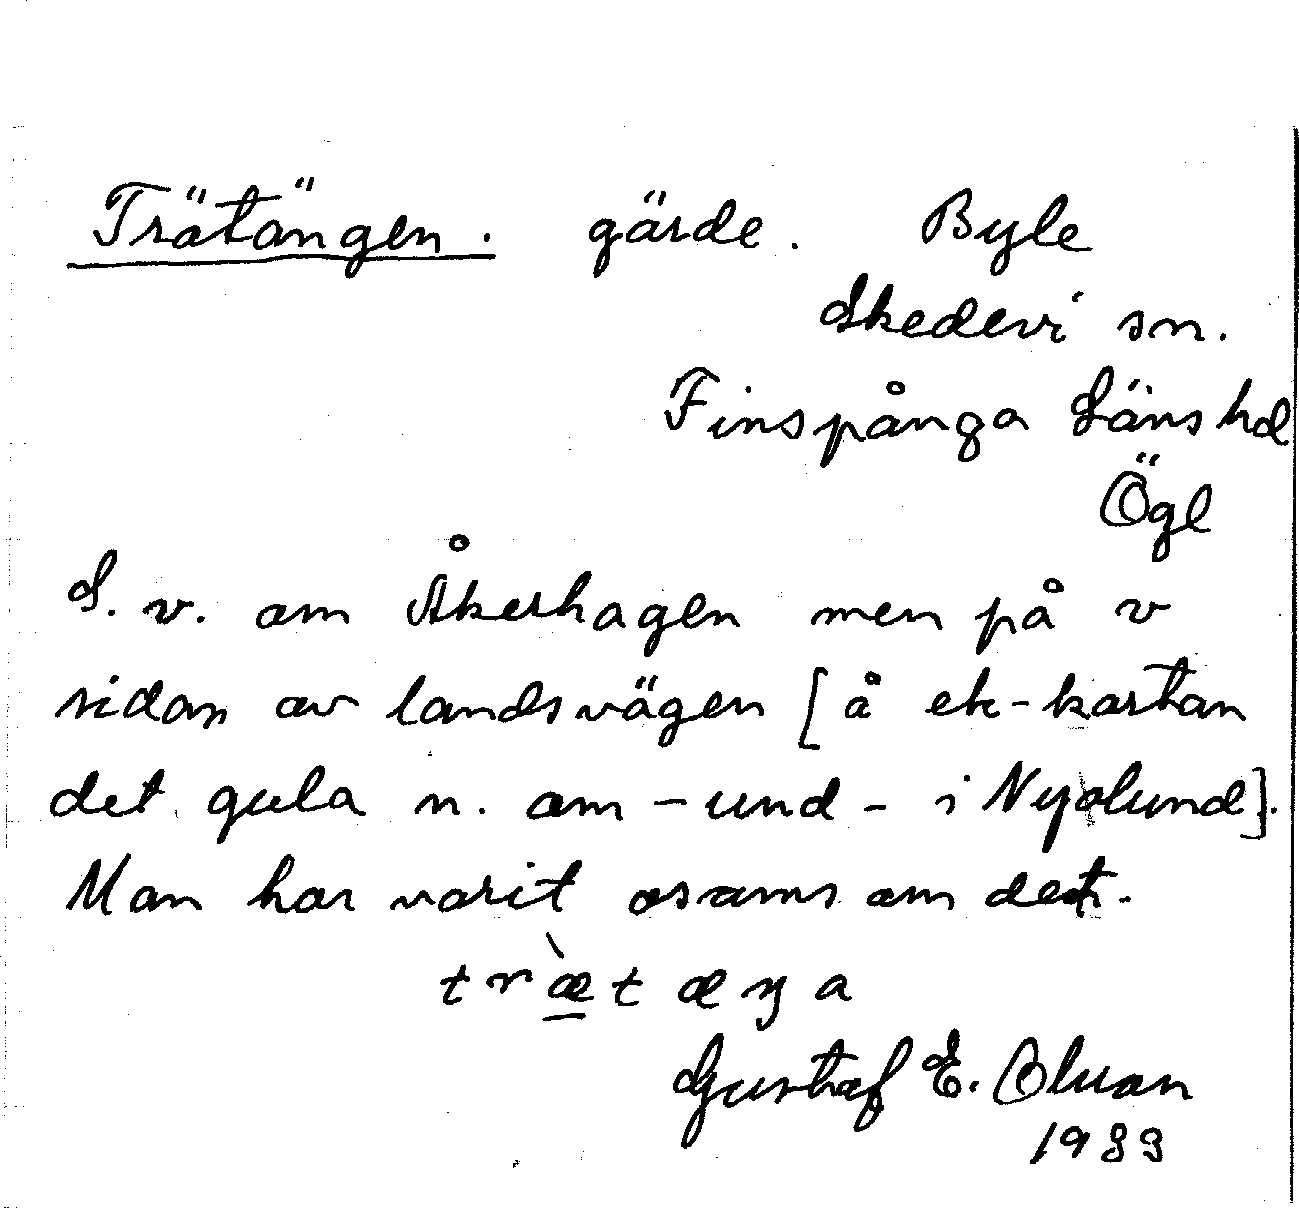 Trätängen. gärde. Byle
Skedevi sn.
Finspånga Läns hd
Ögl
S. v. om Åkerhagen men på v
sidan av landsvägen [å ek-kartan
det gula n. om - und - i Nyolund].
Man har varit osams om det.
træ̀tæŋa
Gustaf E. Olsson
1933